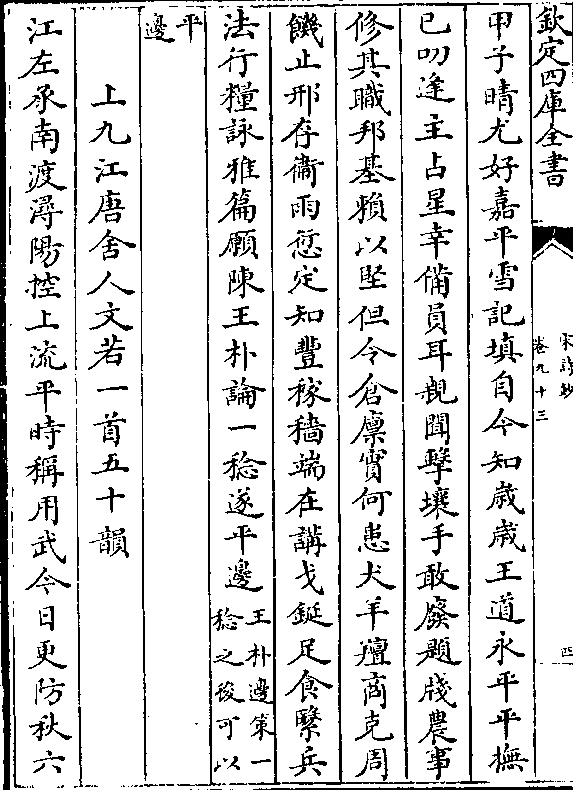 欽定四庫全書
宋詩抄
卷九十三
四
甲子晴尤好嘉平雪記填自今知歳歳王道永平平撫
已叨逢主占星幸備員耳親聞擊壤手敢廢題牋農事
修其職邦基賴以堅但令倉廩實何患犬羊羶商克周
饑止邢存衞雨愆定知豐稼穡端在講戈鋋足食繄兵
法行糧詠雅篇願陳王朴論一稔遂平邊王朴邊策一
稔之後可以
平
邊
上九江唐舍人文若一首五十韻
江左承南渡潯陽控上流平時稱用武今日更防秋六